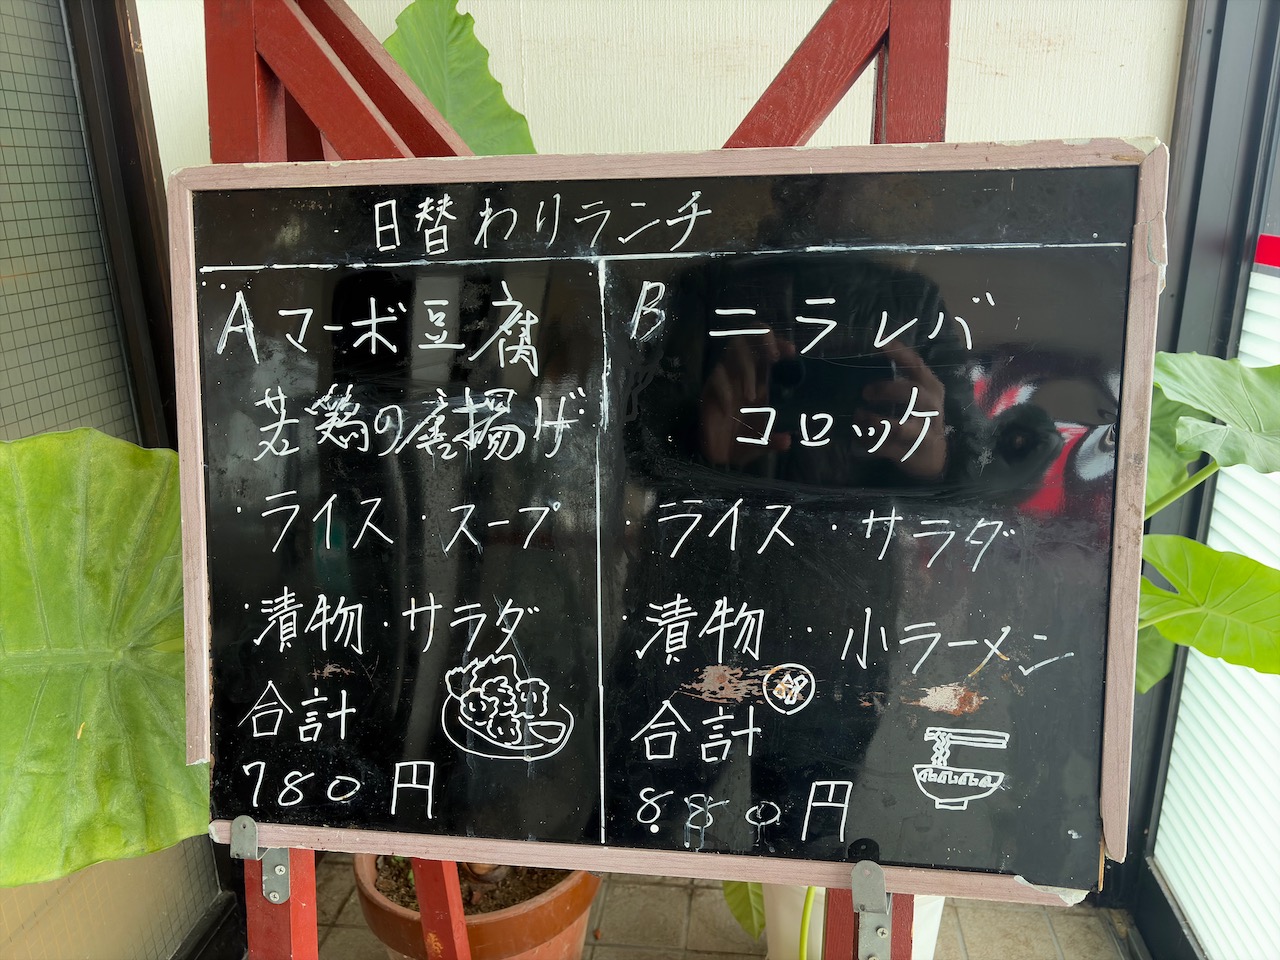 日替わりランチ
A マーボ豆腐
若鶏の唐揚げ
・ライス・スープ
・漬物・サラダ
合計
780円
B ニラレバ
コロッケ
・ライス・サラダ
・漬物・小ラーメン
合計
880円